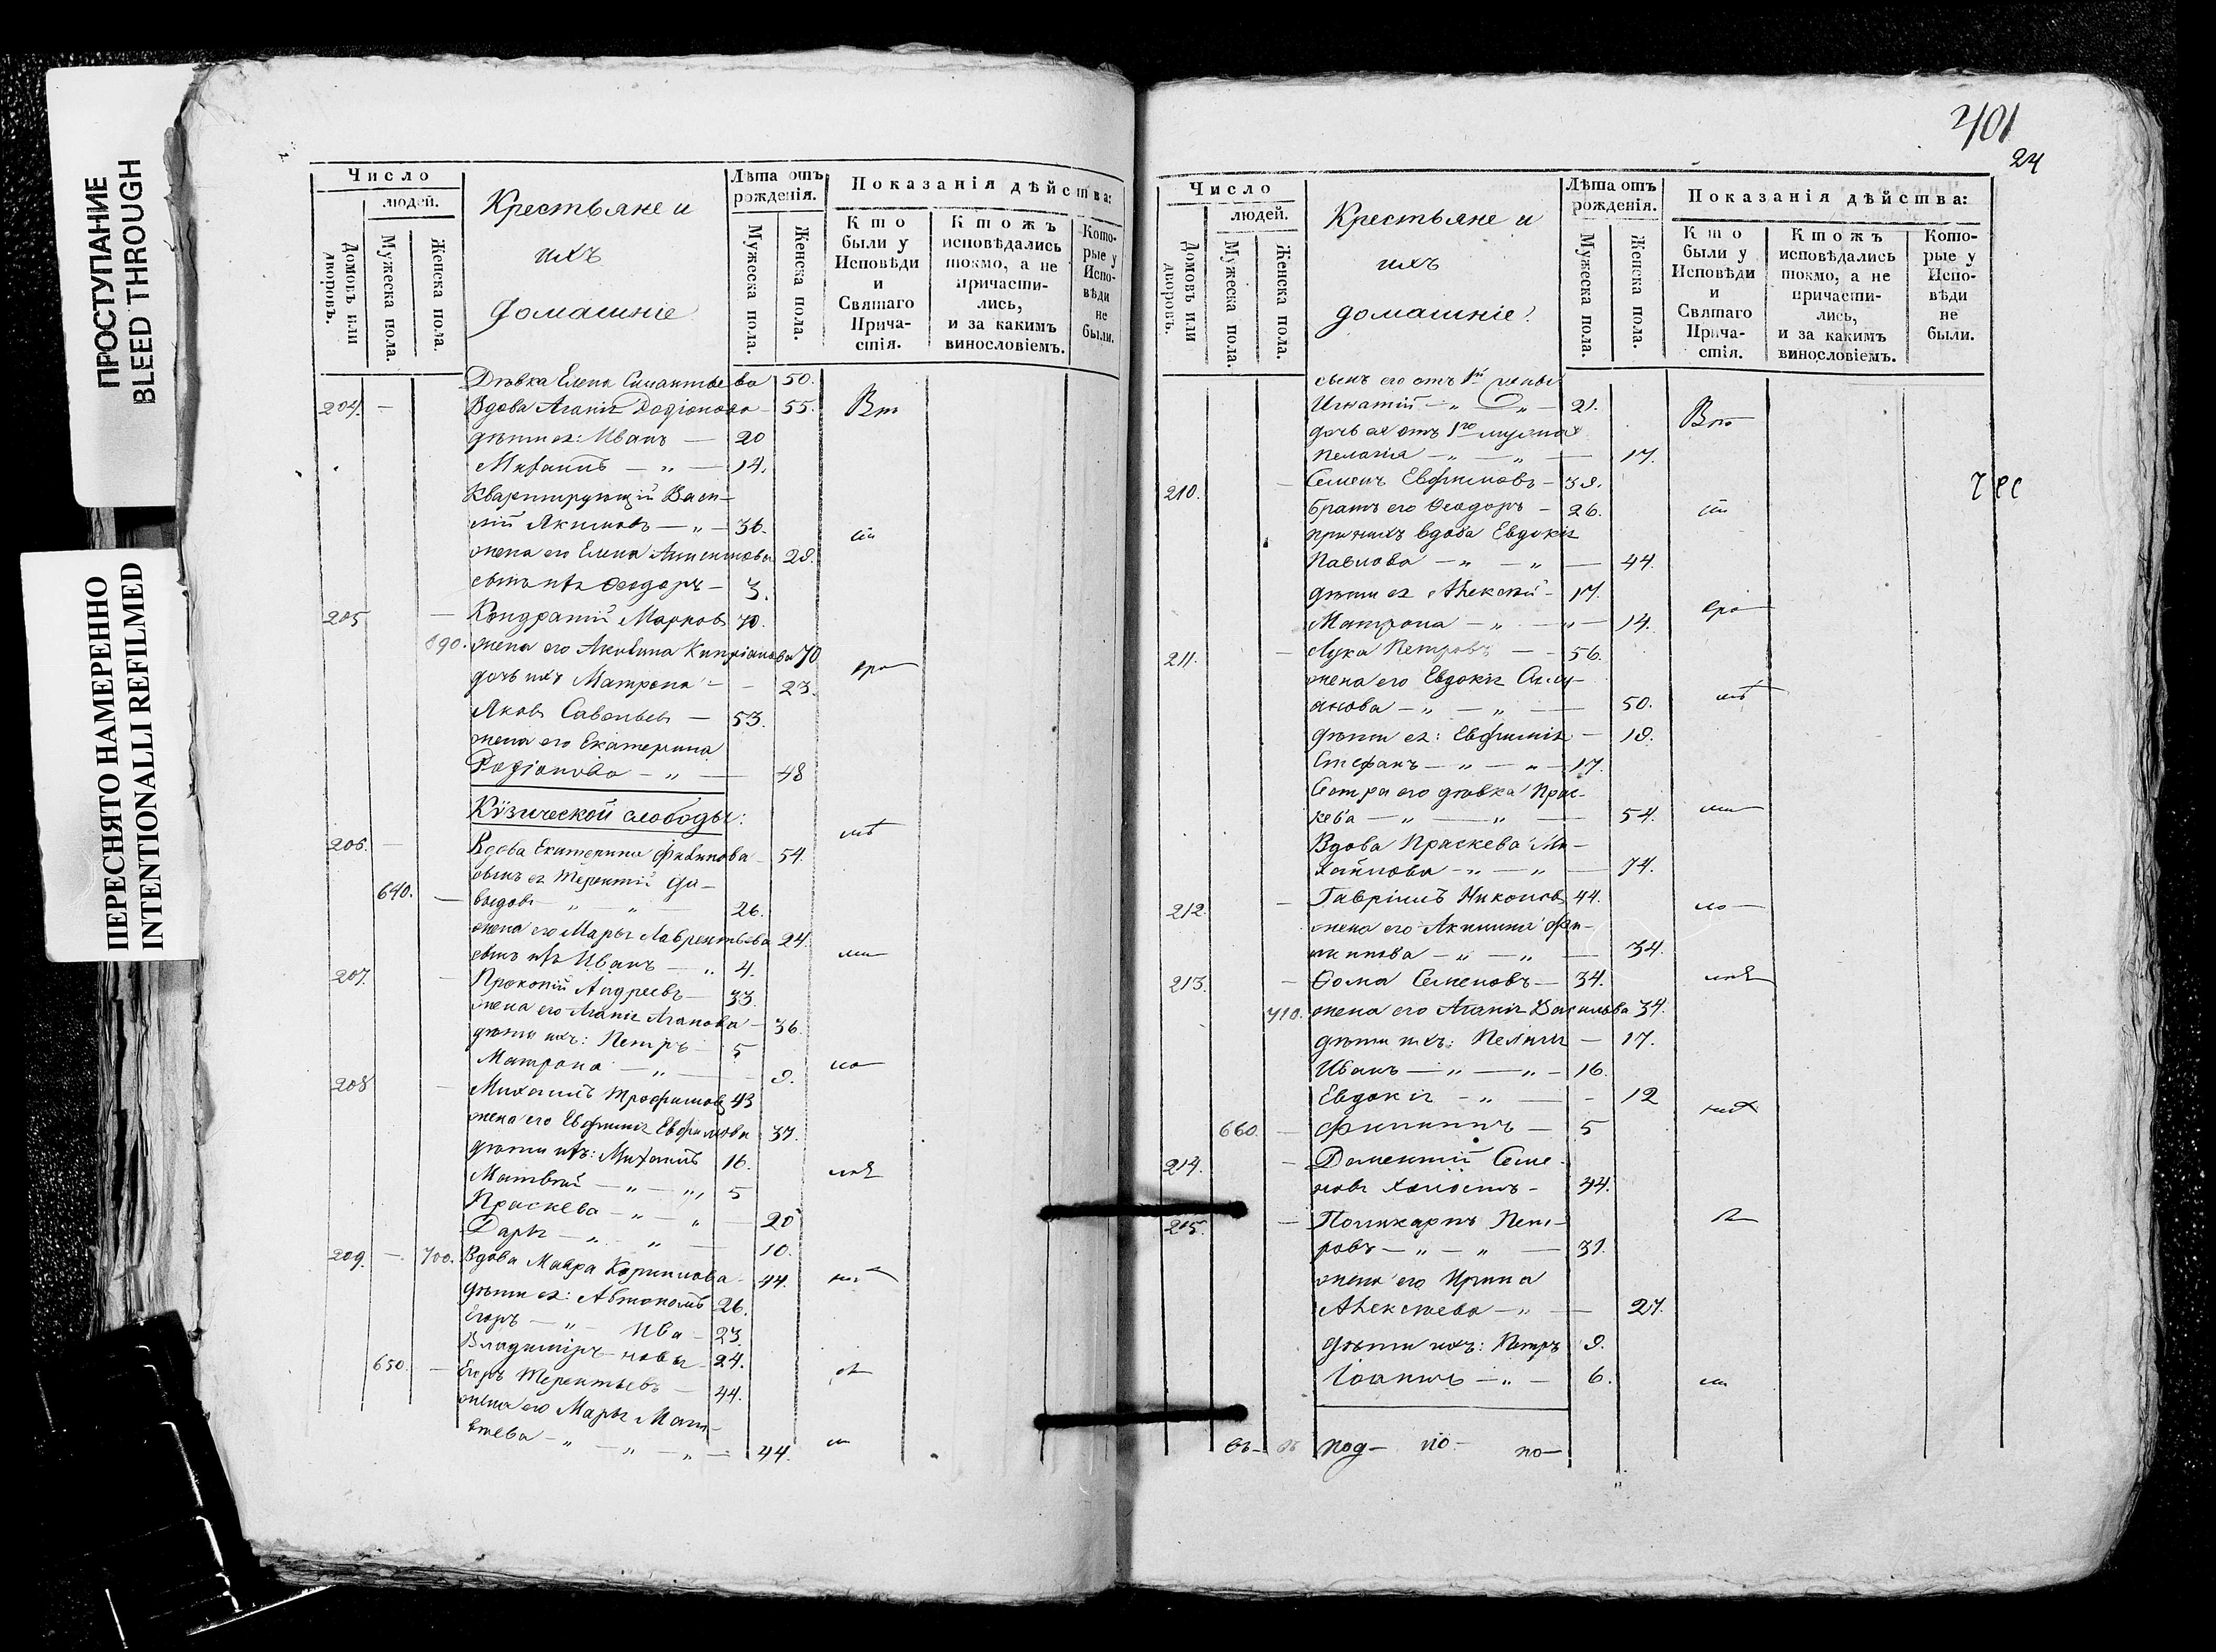 ПРОСТУПАНИЕ
BLEED THROUGH
ПЕРЕСНЯТО НАМЕРЕННО
INTENTIONALLI REFILMED
Число
людей.
Домовъ или дворовъ.
Мужеска пола.
Женска пола.
Крестьяне и
ихъ
домашніе
Лѣта отъ рожденія.
Мужеска пола.
Женска пола.
Показанія дѣйства:
Кто были у Исповѣди и Святаго Прича-стія.
Ктожъ исповѣдались токмо, а не причасти-лись, и за какимъ винословіемъ.
Кото-рые у Испо-вѣди не были.
Дѣвка Елена 50.
204. — Вдова Агапія Родіонова — 55.
дѣти ея: Иванъ — 20
Михаилъ — „ — 14.
Квартирующій Васи-
лій Якимовъ — „ — 36.
жена его Елена 28.
сынъ ихъ Ѳеодоръ — 3.
205 — Кондратій Марковъ 70.
690. жена его Акилина Кипріанова 70
дочь ихъ Матрона — — 23.
Яковъ Савельевъ — 53.
жена его Екатерина
Родіонова — „ — 48
Кузической слободы:
206. — Вдова Екатерина Филипова — 54.
сынъ ея Терентій Да-
640. — выдовъ — „ — „ — 26.
жена его Марья Лаврентьева 24.
сынъ ихъ Иванъ — „ 4.
207. — Прокопій Андреевъ — 33.
жена его Агапія Агапова — 36.
дѣти ихъ: Петръ — 5
Матрона — „ — 9.
208 — Михаилъ Трофимовъ 43
жена его Евфимія Евфимова 37.
дѣти ихъ: Михаилъ 16.
Матвѣй — „ — „ 5
Праскева — „ — „ — 20
Дарья — „ — „ — 10.
209. — 700. Вдова Мавра Корнилова — 44.
дѣти ея: Автономъ 26.
Егоръ — „ — Ива — 23.
Владиміръ — новы — 24.
650. — Егоръ Терентьевъ — 44.
жена его Марья Мат-
вѣева — „ — „ — „ — 44.
401
24
Число
людей.
Домовъ или дворовъ.
Мужеска пола.
Женска пола.
Крестьяне и
ихъ
домашніе.
Лѣта отъ рожденія.
Мужеска пола.
Женска пола.
Показанія дѣйства:
Кто были у Исповѣди и Святаго Прича-стія.
Ктожъ исповѣдались токмо, а не причасти-лись, и за какимъ винословіемъ.
Кото-рые у Испо-вѣди не были.
сынъ его отъ 1й жены
Игнатій — „ — „ — 21.
дочь ея отъ 1го мужа
Пелагія — „ — „ — 17.
210. — Семенъ Евфимовъ — 39.
братъ его Ѳеодоръ — 26.
при нихъ вдова Евдокія
Павлова — „ — „ — 44.
дѣти ея Алексѣй — 17.
Матрона — „ — „ — 14.
211. — Лука Петровъ — — 56.
жена его Евдокія
50.
дѣти ея: Евфимія — 19.
Стефанъ — „ — „ — 17.
Сестра его дѣвка Прас-
кева — „ — „ — 54.
Вдова Праскева Ми-
хайлова — „ — „ — 74.
212. — Гавріилъ Никоновъ 44.
жена его Акилина Фи-
липова — „ — „ — 34.
213. — Ѳома Семеновъ — 34.
710. жена его Агапія Васильева 34.
дѣти ихъ: Пелагія — 17.
Иванъ — „ — „ — 16.
Евдокія — „ — — 12
660. — Филиппъ — 5
214. — Дометій Семе-
новъ холостъ — 44.
215. — Поликарпъ Пет-
ровъ — „ — „ — 31.
жена его Ирина
Алексѣева — „ — 27.
дѣти ихъ: Петръ 9.
Іоаннъ — „ — 6.
под — но — по —